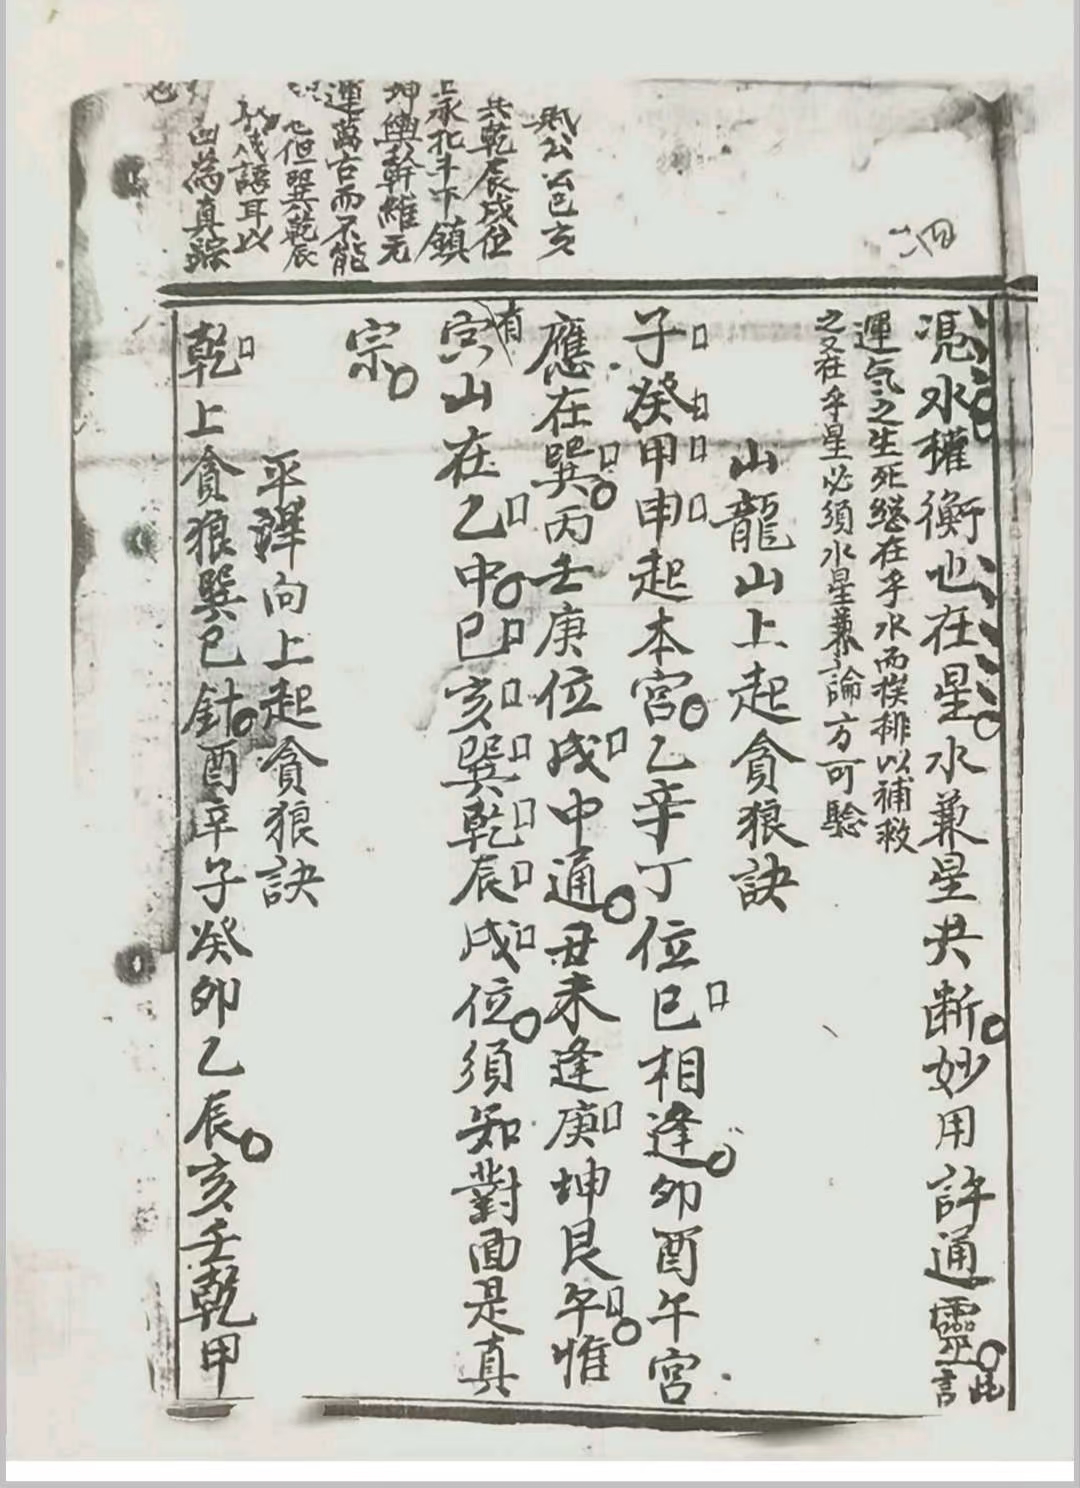 憑水權衡也在星水兼星共断妙用許通靈此言
運氣之生死総在乎水而挨排以補救
之又在乎星必須水星兼論方可驗
山龍山上起貪狼訣
子癸甲申起本宮乙辛丁位巳相逢卯酉午宮
應在巽丙壬庚位戌中通丑未逢庚坤艮午惟
有
寅山在乙中巳亥巽乾辰戌位須知對面是真
宗
平洋向上起貪狼訣
乾上貪狼巽巳針酉辛子癸卯乙辰亥壬乾甲
公以巳亥
共乾辰戌位
上承北斗下鎮
坤輿幹維元
運萬古而不能
但巽乾辰
成語耳以
為真踪